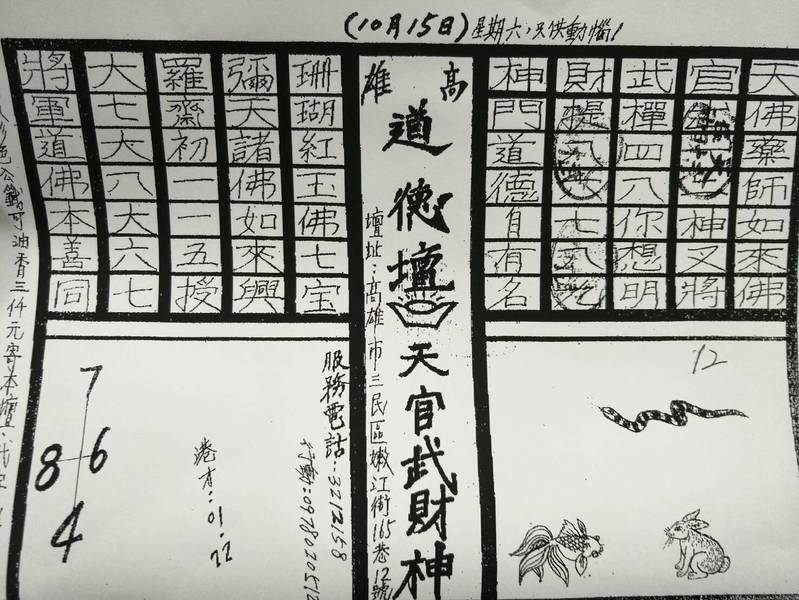 (10月15日)星期六,只供動惱!
天佛藥師如來佛
官神又將
武樿四八你想明
財提八七八
神門道德自有名
12
高雄
道德壇
天官武財神
壇址:高雄市三民區嫩江街165巷12號
珊瑚紅玉佛七宝
彌天諸佛如來興
羅齋初一一五授
大七大八大六七
將軍道佛本善同
服務電話:3212158
行動:0978020512
港才:01.22
7
8 6
4
油香三仟元寄本壇